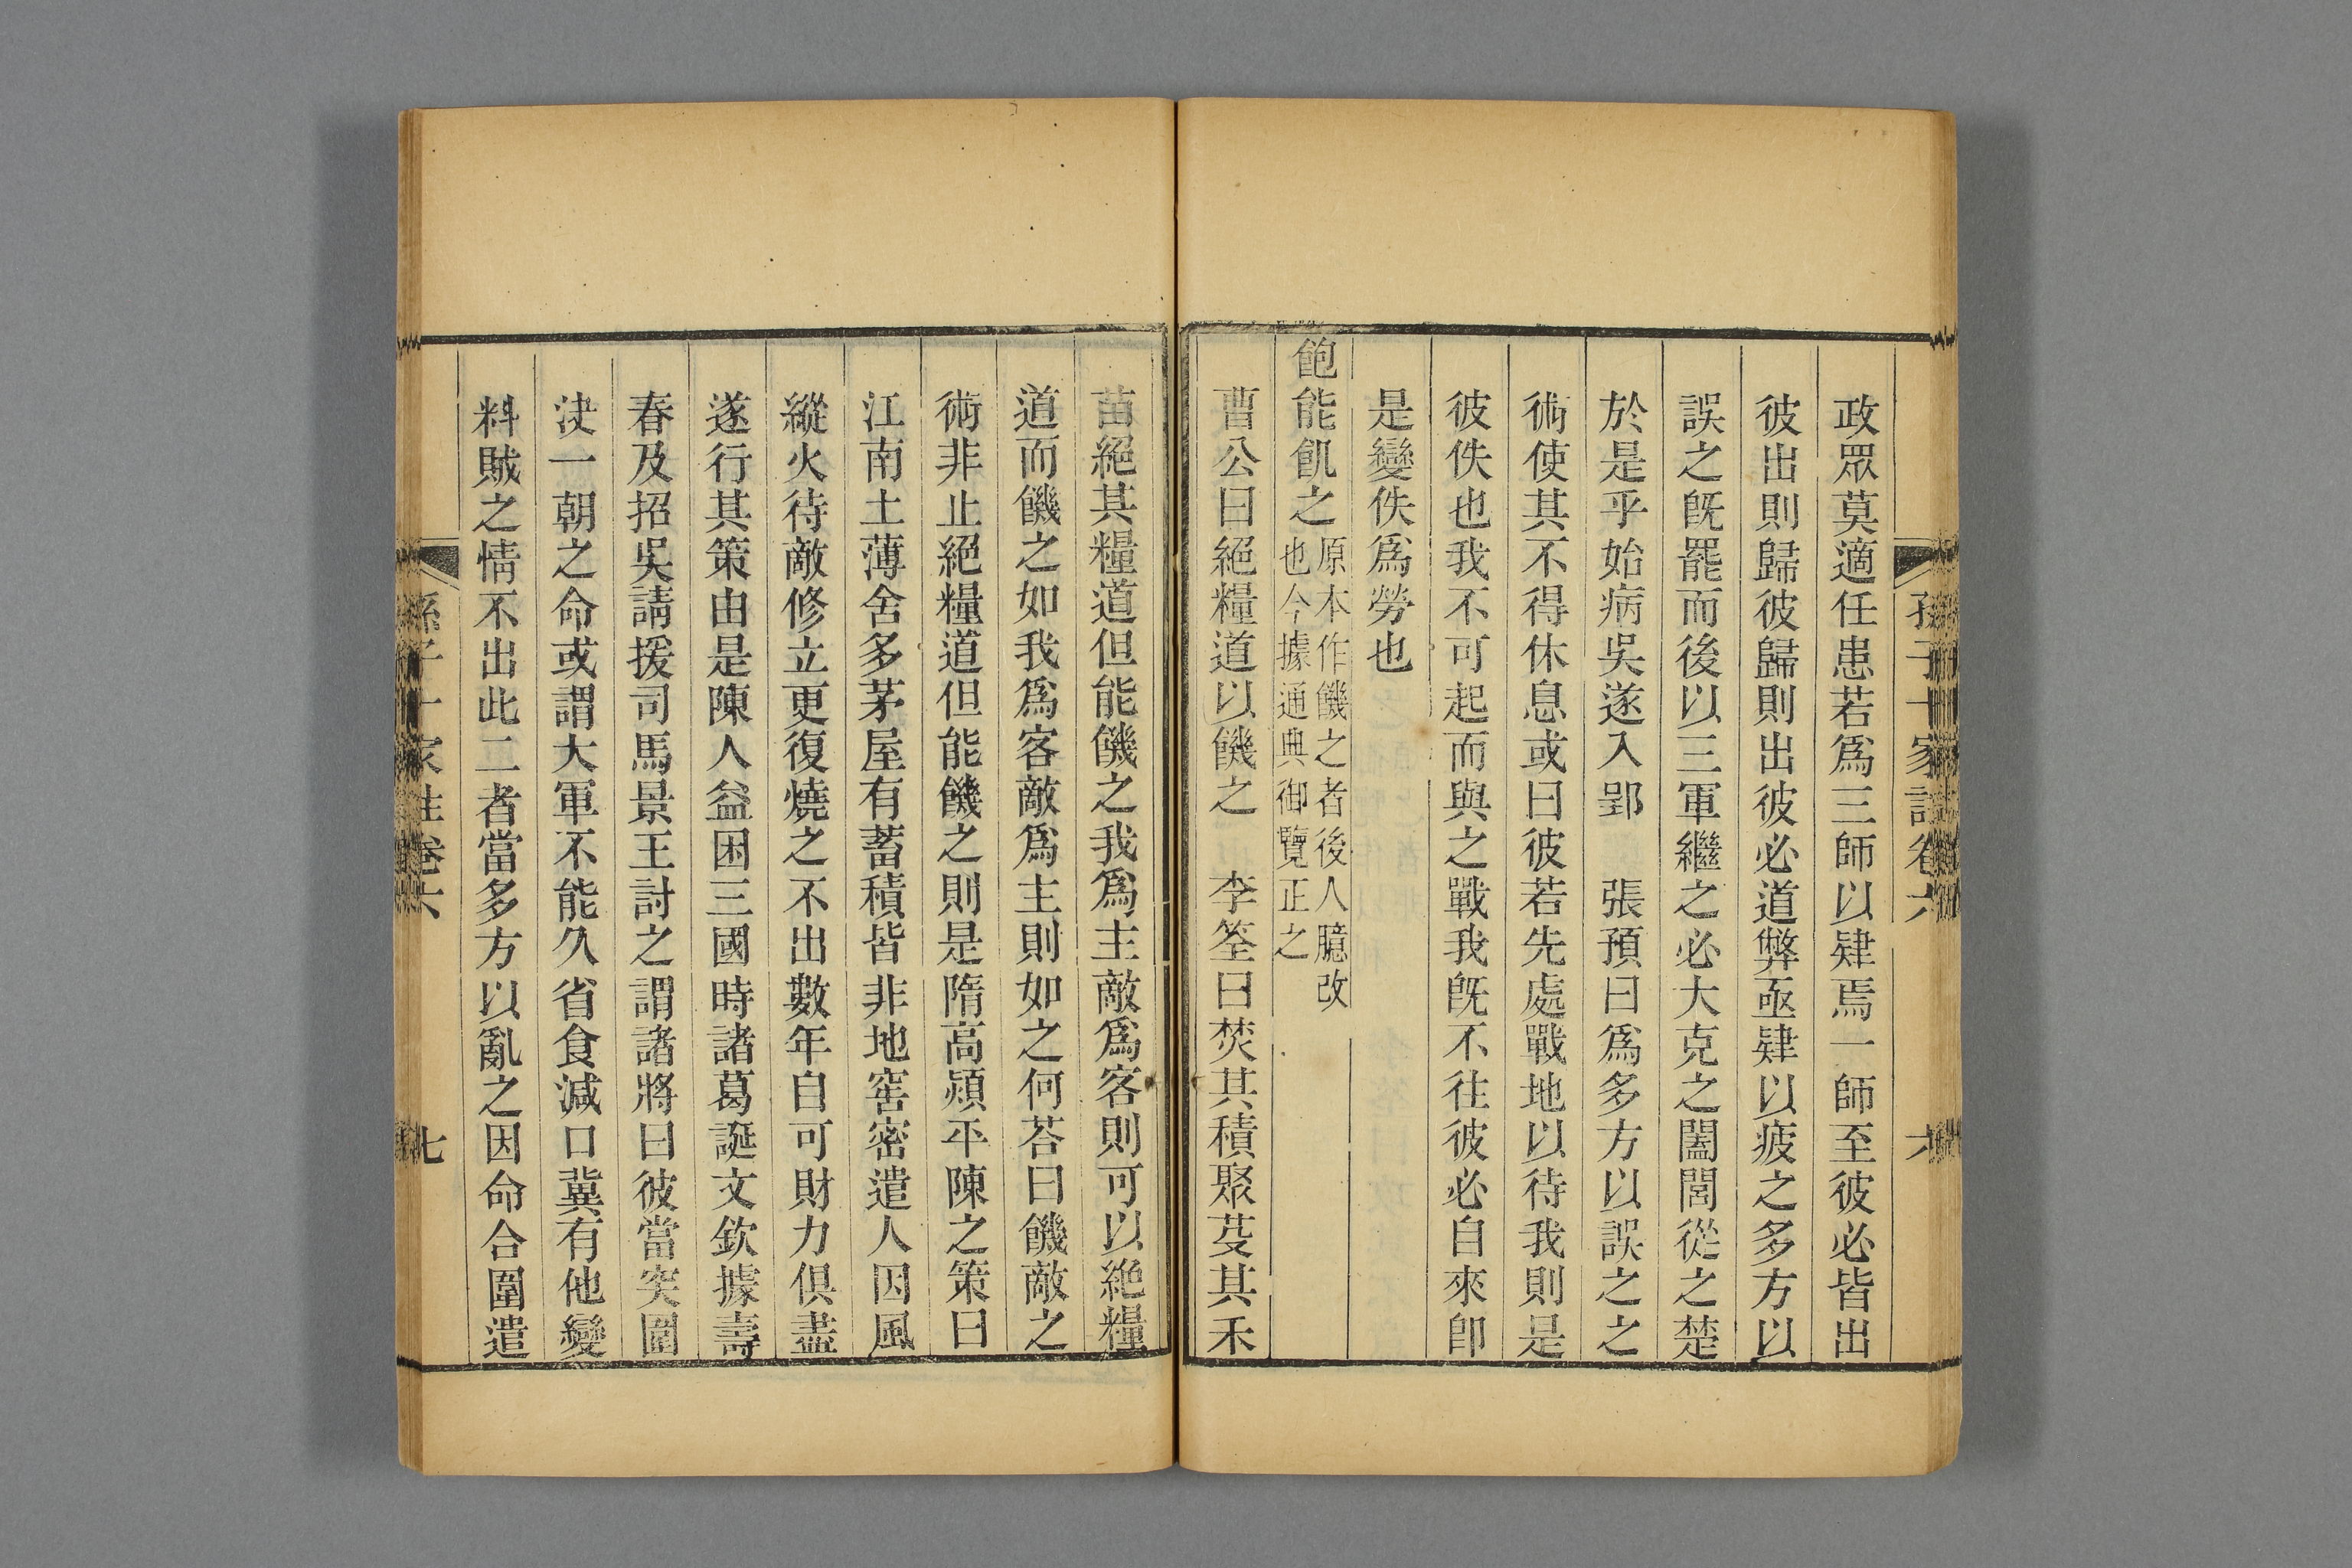 孫子十家註卷六 六
政眾莫適任患若爲三師以肄焉一師至彼必皆出
彼出則歸彼歸則出彼必道弊亟肄以疲之多方以
誤之旣罷而後以三軍繼之必大克之闔閭從之楚
於是乎始病吳遂入郢 張預曰爲多方以誤之之
術使其不得休息或曰彼若先處戰地以待我則是
彼佚也我不可起而與之戰我旣不往彼必自來卽
是變佚爲勞也
飽能飢之
原本作饑之者後人臆改
也今據通典御覽正之
曹公曰絕糧道以饑之 李筌曰焚其積聚芟其禾
苗絕其糧道但能饑之我爲主敵爲客則可以絕糧
道而饑之如我爲客敵爲主則如之何荅曰饑敵之
術非止絕糧道但能饑之則是隋高熲平陳之策曰
江南土薄舍多茅屋有蓄積皆非地窖密遣人因風
縱火待敵修立更復燒之不出數年自可財力俱盡
遂行其策由是陳人益困三國時諸葛誕文欽據壽
春及招吳請援司馬景王討之謂諸將曰彼當突圍
決一朝之命或謂大軍不能久省食減口冀有他變
料賊之情不出此二者當多方以亂之因命合圍遣
孫子十家註卷六 七